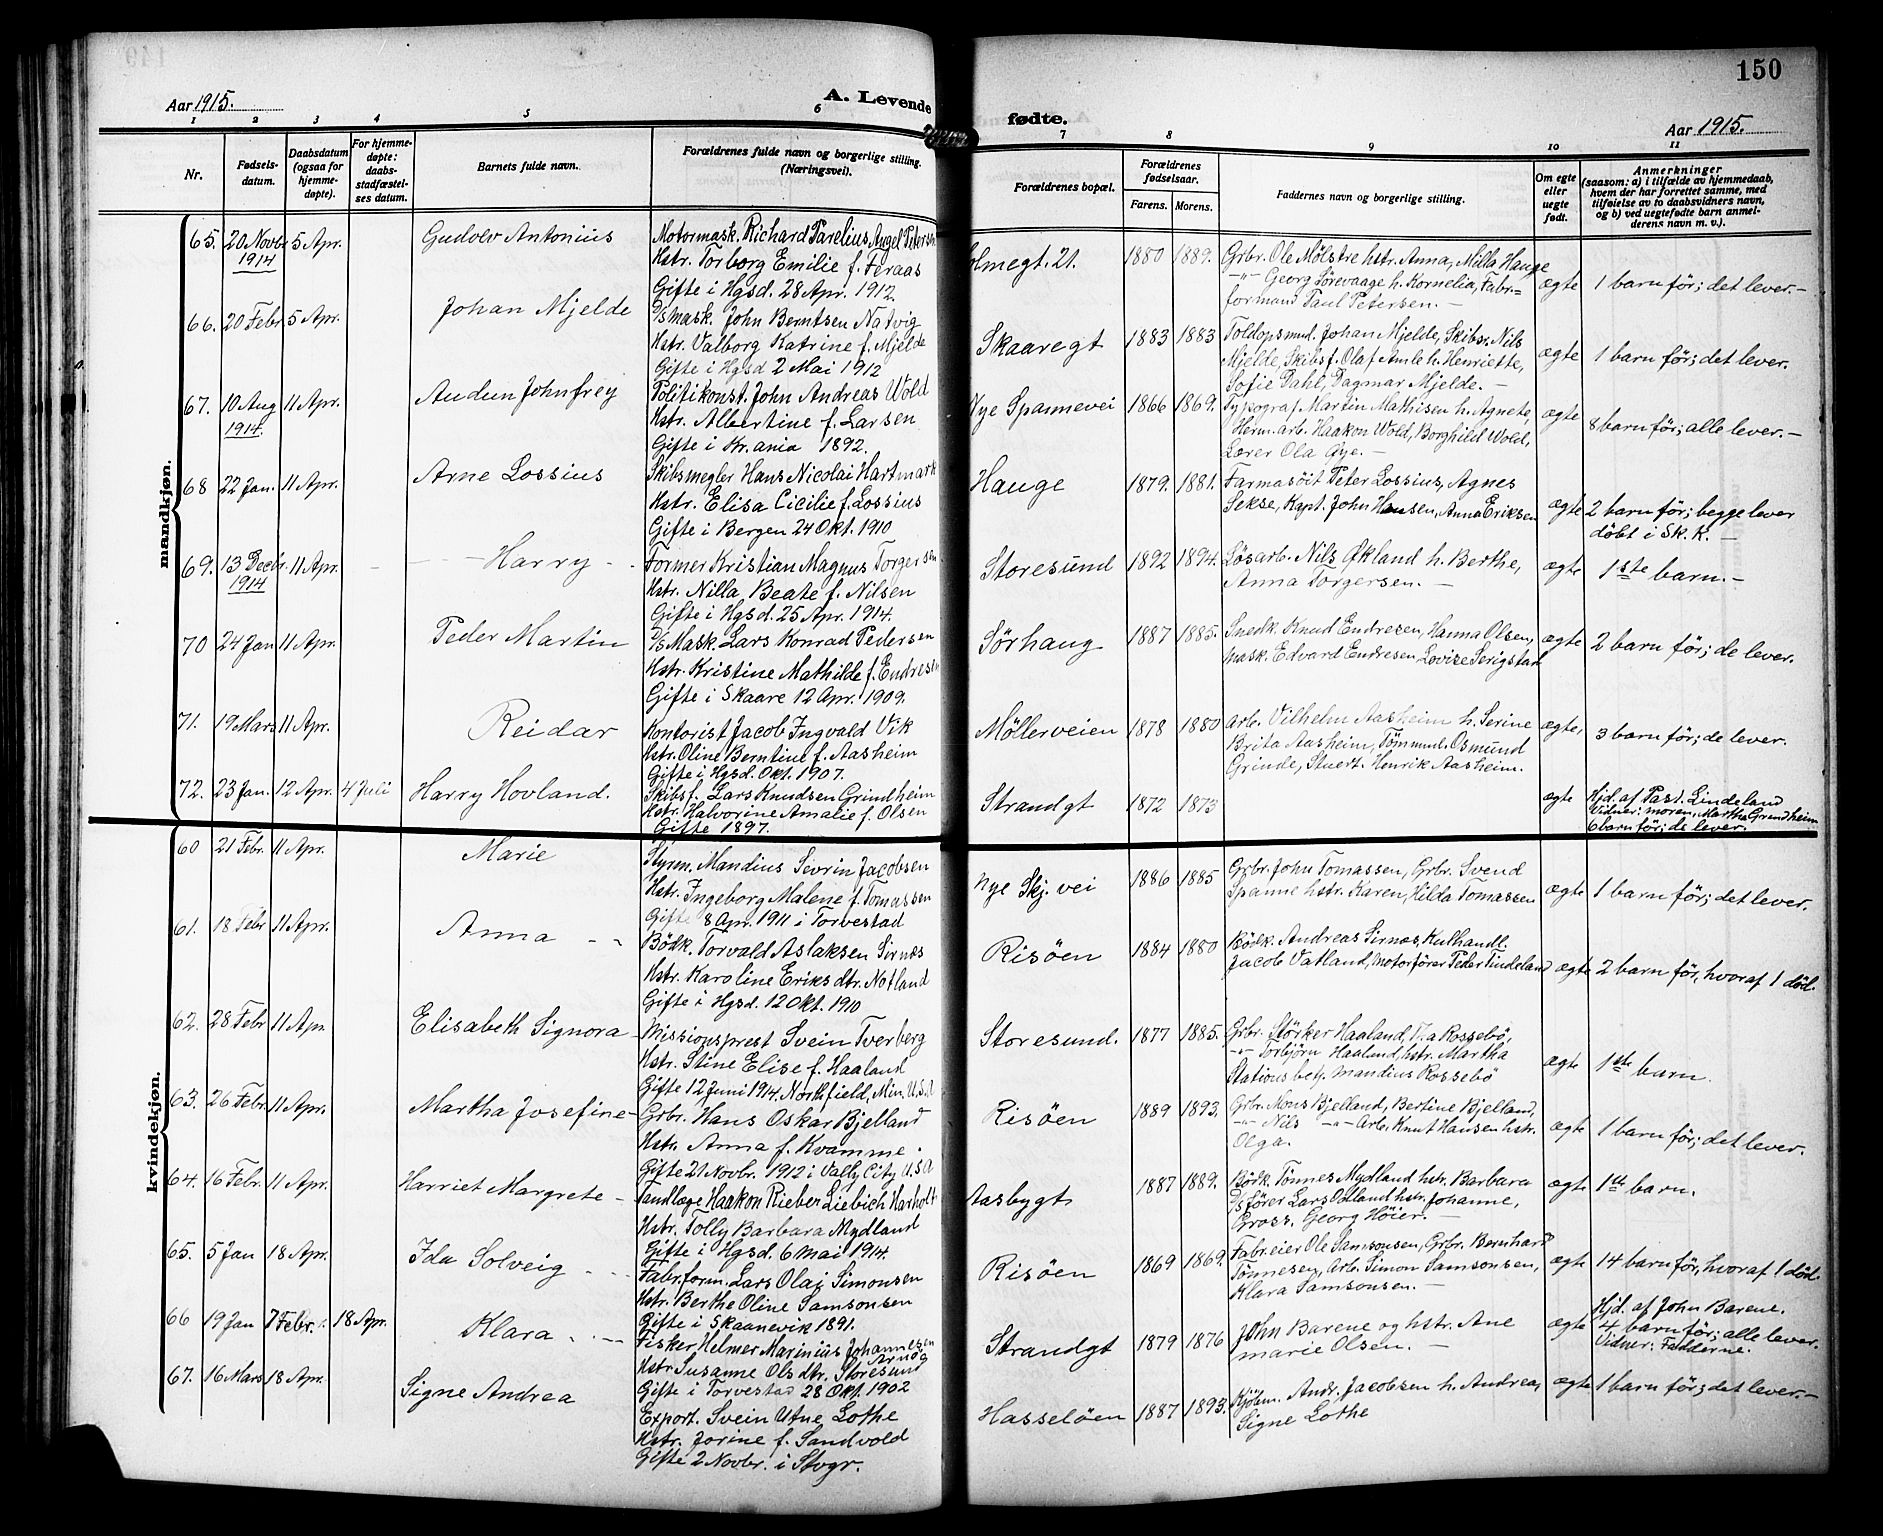 150
Aar 1915.
A. Levende
fødte.
Aar 1915.
1 2 3 4 5 6
7 8 9 10 11
Nr.
Fødsels-
datum.
Daabsdatum
(ogsaa for
hjemme-
døpte).
For hjemme-
døpte:
daabs-
stadfæstel-
ses datum.
Barnets fulde navn.
Forældrenes fulde navn og borgerlige stilling.
(Næringsvei).
Forældrenes bopæl.
Forældrenes
fødselsaar.
Farens. Morens.
Faddernes navn og borgerlige stilling.
Om egte
eller
uegte
født.
Anmerkninger
(saasom: a) i tilfælde av hjemmedaab,
hvem der har forrettet samme, med
tilføielse av to daabsvidners navn,
og b) ved uegtefødte barn anmel-
derens navn m. v.).
mandkjøn.
65. 20 Novbr 5 Apr. Gudolv Antonius
1914
Motormask. Richard Parelius Angel Petersen
Hstr. Torborg Emilie f. Feraas
Gifte i Hgsd. 28 Apr. 1912.
olmegt. 21. 1880 1889.
Grbr. Ole Mølstre hstr. Anna, Milla Hauge
-"- Georg Sørevaage h. Kornelia, Fabr=
formand Paul Petersen. -
ægte 1 barn før; det lever. -
66. 20 Febr 5 Apr. Johan Mjelde
D/S Mask. John Berntsen Natvig
Hstr. Valborg Katrine f. Mjelde
Gifte i Hgsd 2 Mai 1912
Skaaregt 1883 1883
Toldopsmnd. Johan Mjelde, Skibsr. Nils
Mjelde, Skibsf. Olaf Amle h. Henriette,
Sofie Dahl, Dagmar Mjelde. -
ægte 1 barn før; det lever.
67. 10 Aug 11 Apr. Audun Johnfrey
1914.
Politikonst. John Andreas Wold
Hstr. Albertine f. Larsen
Gifte i Kr.ania 1892.
Nye Spannevei 1866 1869.
Typograf Martin Mathisen h. Agnete,
Herm. arb. Haakon Wold, Borghild Wold,
Lærer Ola Øye. -
ægte 8 barn før; alle lever. -
68 22 Jan. 11 Apr. Arne Lossius
Skibsmegler Hans Nicolai Hartmark
Hstr. Elisa Cicilie f. Lossius
Gifte i Bergen 24 Okt. 1910
Hauge 1879. 1881.
Farmasøit Peter Lossius, Agnes
Sekse, Kapt. John Hansen, Anna Eriksen
ægte 2 barn før; begge lever
døbt i Sk. K. -
69. 13 Decbr. 11 Apr. - - - Harry - -
1914
Former Kristian Magnus Torgersen
Hstr. Nilla Beate f. Nilsen
Gifte i Hgsd. 25 Apr. 1914.
Storesund 1892 1894.
Løsarb. Nils Økland h. Berthe,
Anna Torgersen. -
ægte 1ste barn. -
70 24 Jan 11 Apr. Peder Martin
D/S Mask. Lars Konrad Pedersen
Hstr. Kristine Mathilde f. Endresen
Gifte i Skaare 12 Apr. 1909.
Sørhaug 1887 1885.
Snedk. Knud Endresen, Hanna Olsen,
Mask. Edvard Endresen, Lovise Serigstad
ægte 2 barn før; de lever.
71. 19 Mars 11 Apr. Reidar
Kontorist Jacob Ingvald Vik
Hstr. Oline Berntine f. Aasheim
Gifte i Hgsd. Okt. 1907.
Møllerveien 1878 1880
Arb. Vilhelm Aasheim h. Serine
Brita Aasheim, Tømmml. Osmund
Grinde, Stuert. Henrik Aasheim.
ægte, 3 barn før; de lever.
72. 23 Jan. 12 Apr. 4 Juli Harry Hovland.
Skibsf. Lars Knudsen Grindheim
Hstr. Halvorine Amalie f. Olsen
Gifte 1897.
Strandgt 1872 1873
ægte Hjd. af Past. Lindeland
Vidner: moren, Martha Grindheim
6 barn før; de lever.
kvindekjøn.
60 21 Febr. 11 Apr. Marie
Styrm. Mandius Sevrin Jacobsen
Hstr. Ingeborg Malene f. Tomassen
Gifte 8 Apr. 1911 i Torvestad
Nye Skj. vei 1886 1885
Grbr. John Tomassen, Grbr. Svend
Spanne hstr. Karen, Hilda Tomassen
ægte 1 barn før; det lever.
61. 18 Febr 11 Apr. Anna - -
Bødk. Torvald Aslaksen Sirnæs
Hstr. Karoline Eriksdtr. Notland
Gifte i Hgsd. 12 Okt. 1910
Risøen 1884 1880
Bødk. Andreas Sirnæs, Kulhandl.
Jacob Vatland, Motorfører Peder Tindeland
ægte 2 barn før, hvoraf 1 død.
62. 28 Febr 11 Apr. Elisabeth Signora
Missionsprest Svein Tverberg
Hstr. Stine Elise f. Haaland
Gifte 12 Juni 1914. Northfield, Min, U.S.A
Storesund. 1877 1885.
Grbr. Størker Haaland, Rossebø,
-"- Torbjørn Haaland, hstr. Martha
Stations betj. Mandius Rossebø
ægte 1ste barn.
63. 26 Febr. 11 Apr. Martha Josefine
Grbr. Hans Oskar Bjelland
Hstr. Anna f. Kvamme.
Gifte 21 Novbr. 1912 i Vally City U.S.A
Risøen 1889 1893.
Grbr. Mons Bjelland, Bertine Bjelland,
-"- Nils -"- Arb. Knut Hansen hstr.
Olga.
ægte 1 barn før; det lever.
64. 16 Febr. 11 Apr. Harriet Margrete -
Tandlæge Haakon Rieber Liebich Harholt
Hstr. Tolly Barbara Mydland
Gifte i Hgsd. 6 Mai 1914.
Aasbygt 1887 1889.
Bødk. Tønnes Mydland hstr. Barbara
D/S fører Lars Østland hstr. Johanne,
Gross. Georg Høier. -
ægte 1ste barn.
65. 5 Jan 18 Apr. Ida Solveig - -
Fabr.form. Lars Olai Simonsen
Hstr. Berthe Oline Samsonsen
Gifte i Skaanevik 1891.
Risøen 1869 1869.
Fabr.eier Ole Samsonsen, Grbr. Bernhard
Tønnesen, Arb. Simon Samsonsen,
Klara Samsonsen. -
ægte 14 barn før, hvoraf 1 død.
66 19 Jan 7 Febr. 18 Apr. Klara - -
Fisker Helmer Marinius Johannesen
Arnøg
Hstr. Susanne Olsdtr. Storesund
Gifte i Torvestad 28 Okt. 1902
Strandgt 1879 1876
John Barene og hstr. Ane
Marie Olsen. -
ægte Hjd. af John Barene.
4 barn før; alle lever.
Vidner: Fadderne.
67. 16 Mars 18 Apr. Signe Andrea
Export. Svein Utne Lothe
Hstr. Jorine f. Sandvold
Gifte 2 Novbr. i Stvgr.
Hasseløen 1887 1893.
Kjøbm. Andr. Jacobsen h. Andrea,
Signe Lothe
ægte 1 barn før; det lever. -